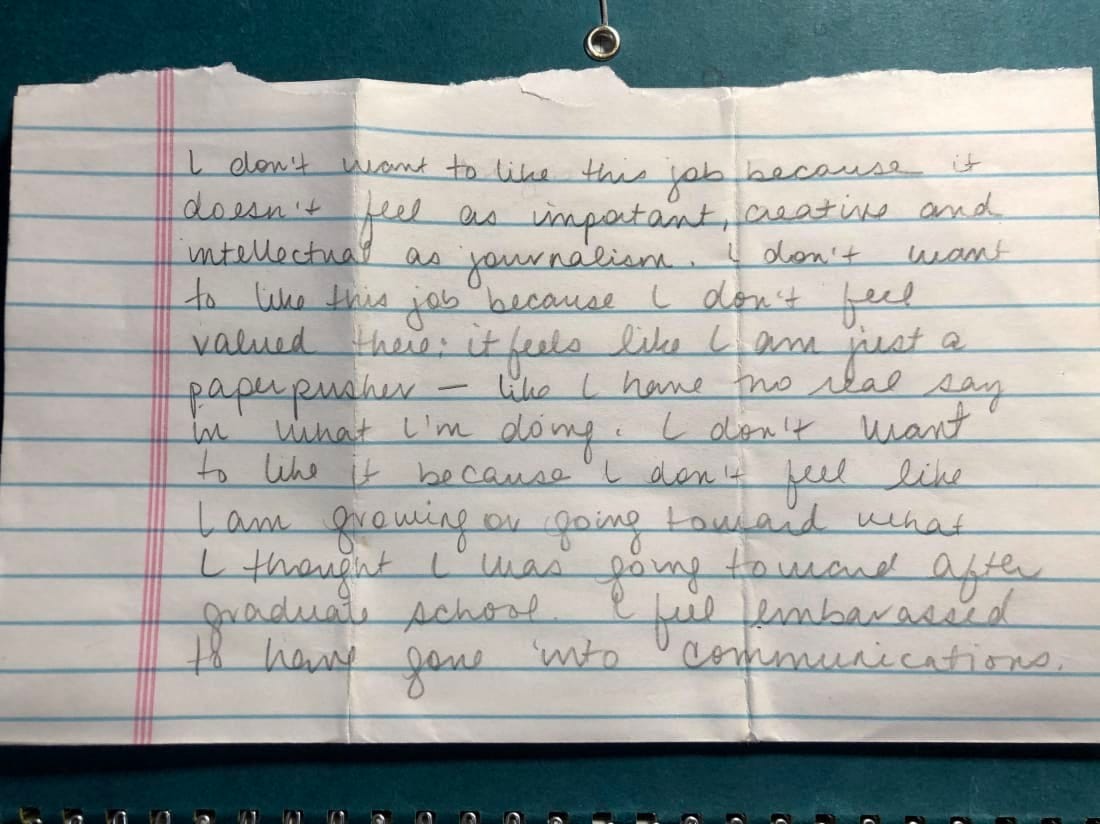 I don't want to like this job because it
doesn't feel as important, creative and
intellectual as journalism. I don't want
to like this job because I don't feel
valued there; it feels like I am just a
paper pusher — like I have no real say
in what I'm doing. I don't want
to like it because I don't feel like
I am growing or going toward what
I thought I was going toward after
graduate school. I feel embarassed
to have gone into communications.